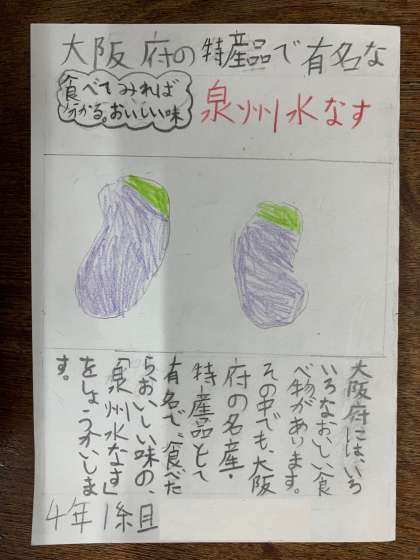 大阪府の特産品で有名な
食べてみれば
分かる。おいしい味
泉州水なす
大阪府には、いろ
いろなおいしい食
べ物があります。
その中でも、大阪
府の名産・
特産品として
有名で、食べた
らおいしい味の、
「泉州水なす」
をしょうかいしま
す。
4年1組